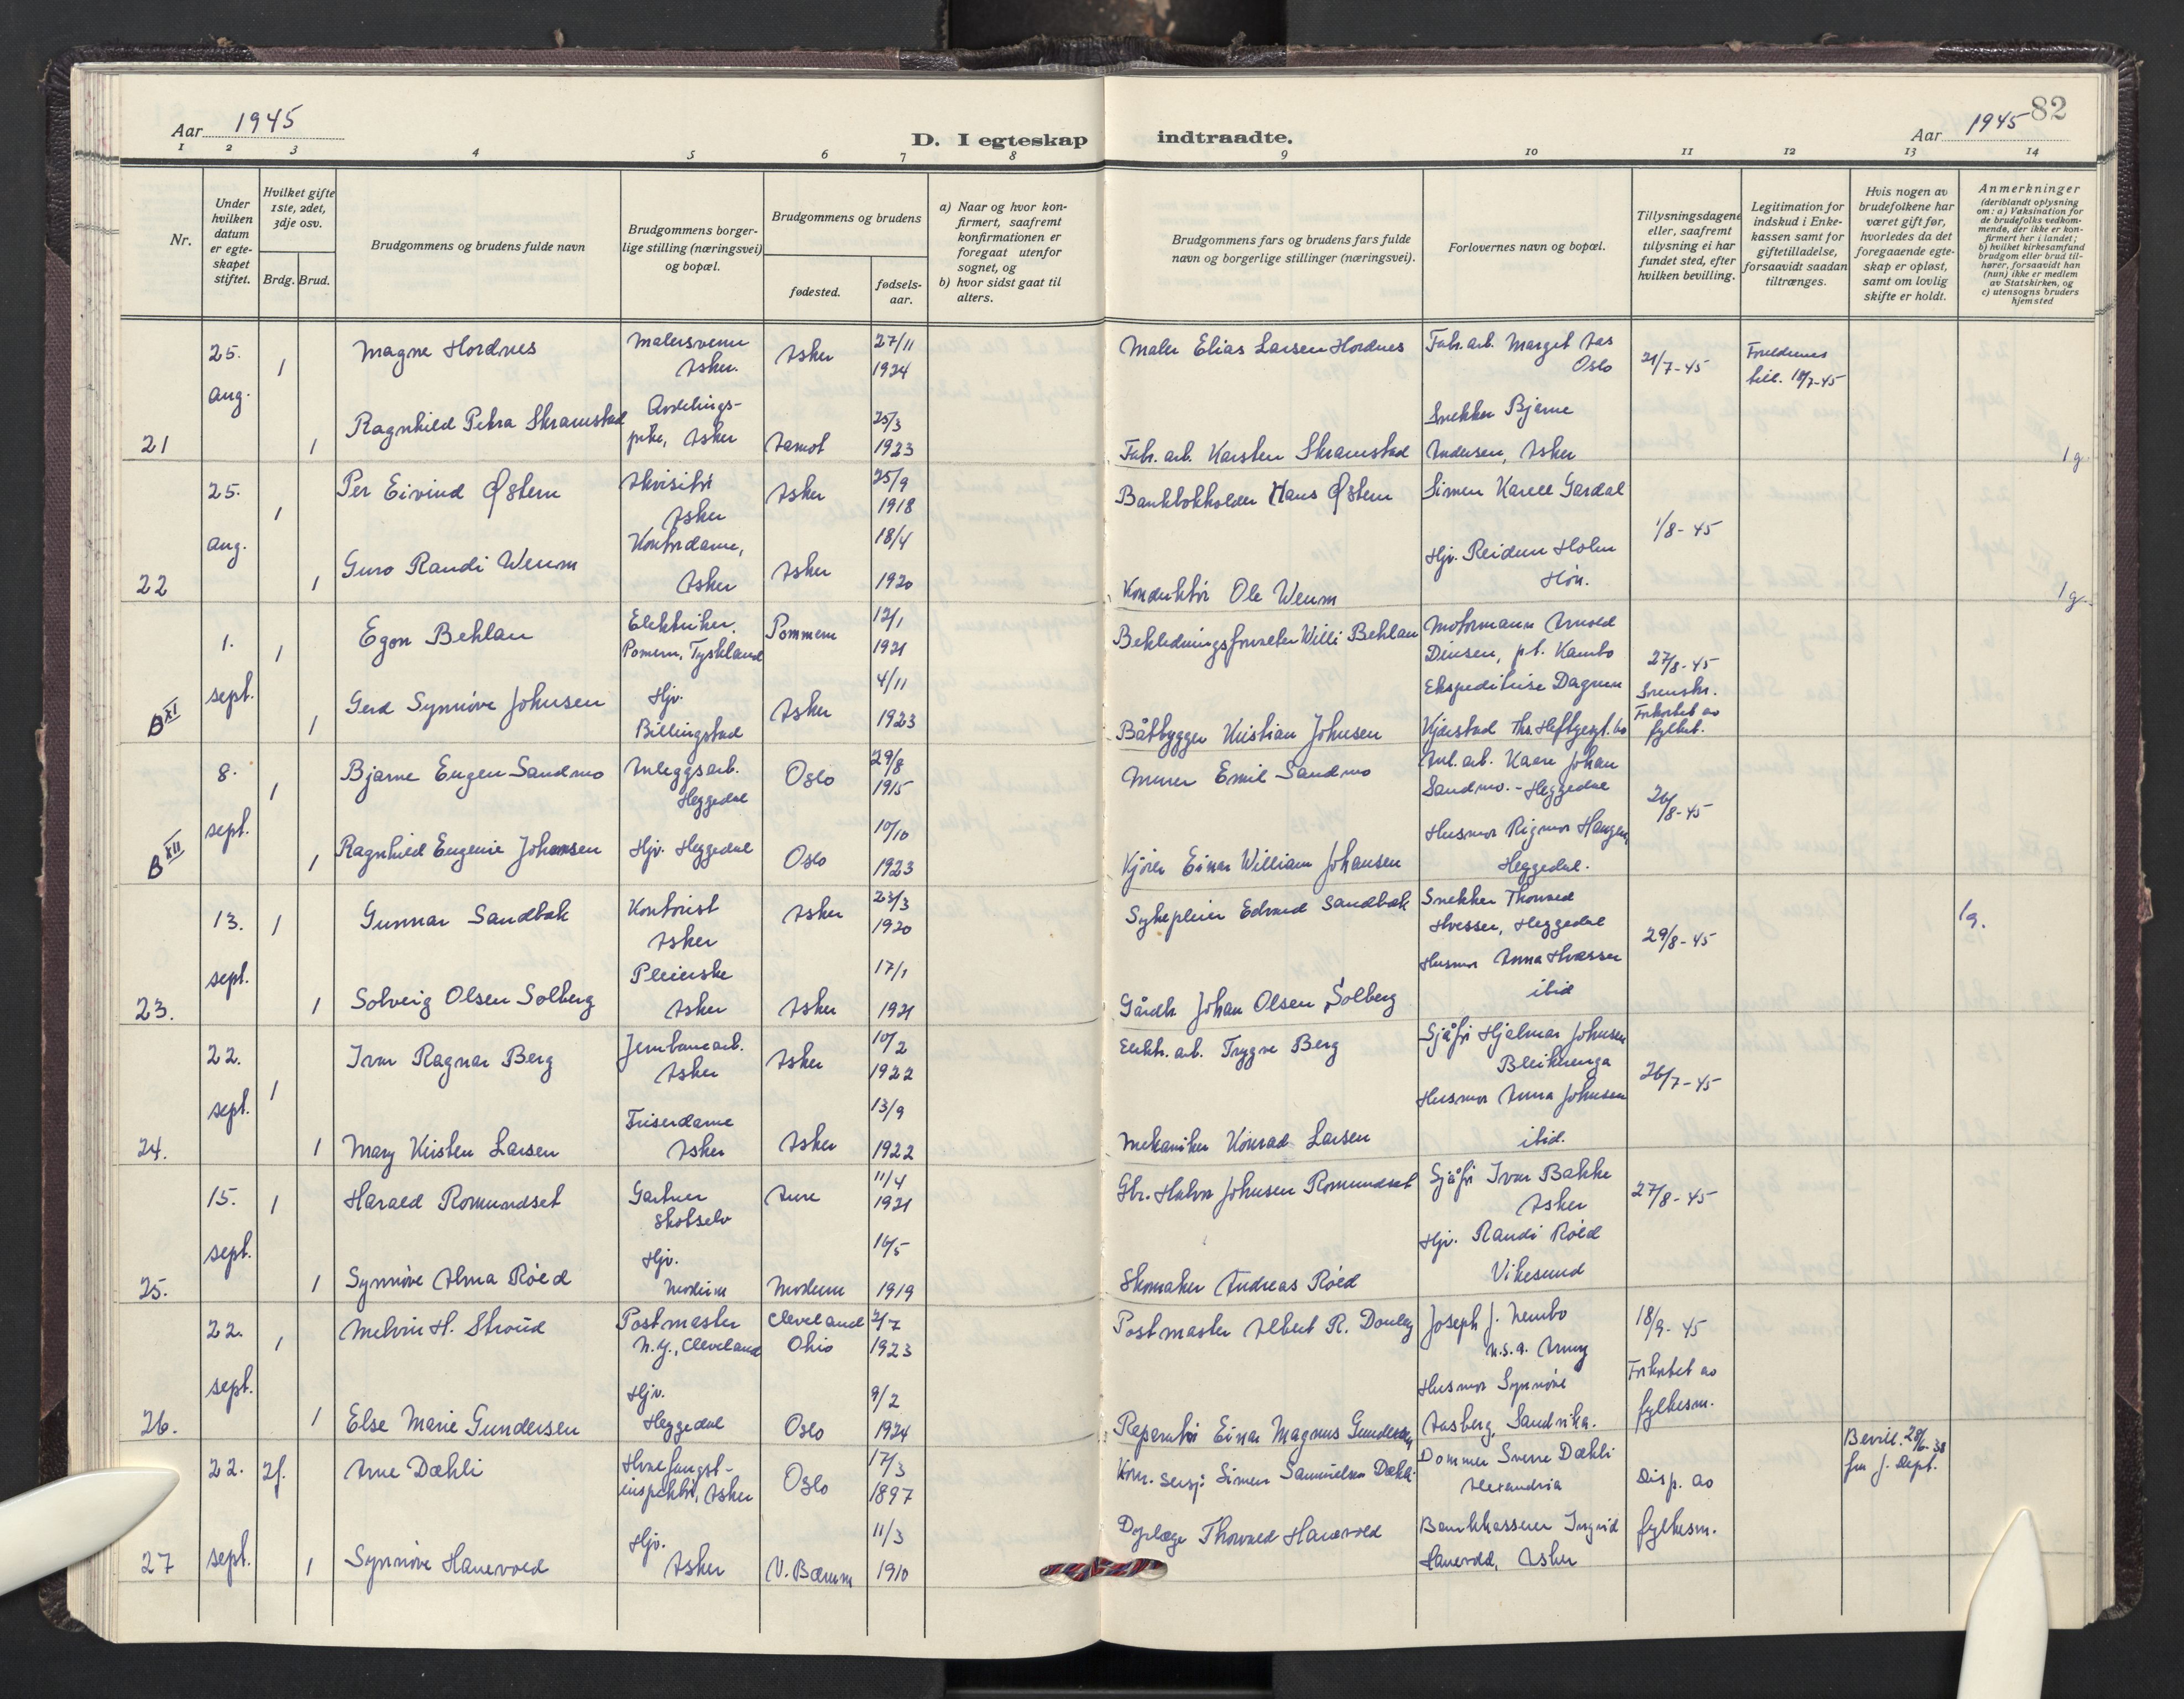 82
Aar 1945
D. I egteskap indtraadte.
Aar 1945
1 2 3 4 5 6 7 8 9 10 11 12 13 14
Nr.
Under hvilken datum er egte-skapet stiftet.
Hvilket gifte 1ste, 2det, 3dje osv.
Brdg. Brud.
Brudgommens og brudens fulde navn
Brudgommens borger-lige stilling (næringsvei) og bopæl.
Brudgommens og brudens
fødested.
fødsels-aar.
a) Naar og hvor kon-firmert, saafremt konfirmationen er foregaat utenfor sognet, og
b) hvor sidst gaat til alters.
Brudgommens fars og brudens fars fulde navn og borgerlige stillinger (næringsvei).
Forlovernes navn og bopæl.
Tillysningsdagene eller, saafremt tillysning ei har fundet sted, efter hvilken bevilling.
Legitimation for indskud i Enke-kassen samt for giftetilladelse, forsaavidt saadan tiltrænges.
Hvis nogen av brudefolkene har været gift før, hvorledes da det foregaaende egte-skap er opløst, samt om lovlig skifte er holdt.
Anmerkninger (deriblandt oplysning om: a) Vaksination for de brudefolks vedkom-mende, der ikke er kon-firmert her i landet; b) hvilket kirkesamfund brudgom eller brud til-hører, forsaavidt han (hun) ikke er medlem av Statskirken, og c) utensogns bruders hjemsted
25. 1 Magne Hordnes Malersvenn Asker. Asker 27/11 1924 Maler Elias Larsen Hordnes Fabr. arb. Margit Aas Oslo 21/7-45 Foreldrenes till. 18/7-45
21 aug. 1 Ragnhild Petra Skramstad Avdelings- Asker Aamot 25/3 1923 Fabr. arb. Karsten Skramstad Snekker Bjarne Andersen, Asker 1 g
25. 1 Per Eivind Østern Akvisitør Asker Asker 25/9 1918 Bankbokholder Hans Østern Simen Karell Gardal 1/8-45
22 aug. 1 Guro Randi Werum Kontordame, Asker Asker 18/4 1920 Konduktør Ole Werum Hjv. Reidun Holm Høn. 1 g.
1. 1 Egon Behlau Elektriker. Pomern, Tyskland Pommern 12/1 1921 Willi Behlau Motormann Arnold Dinsen, pt. Kambo 27/8-45
B XI sept. 1 Gerd Synnøve Johnsen Hjv. Billingstad Asker 4/11 1923 Båtbygger Kristian Johnsen Ekspeditrise Dagrun Forkortet av fylket.
8. 1 Bjarne Eugen Sandmo Anleggsarb. Heggedal Oslo 29/8 1915 Murer Emil Sandmo Anl. arb. Kaare Johan Sandmo. - Heggedal 26/8-45
B XII sept. 1 Ragnhild Eugenie Johansen Hjv. Heggedal Oslo 10/10 1923 Kjører Einar William Johansen Husmor Rigmor Haugen, Heggedal.
13. 1 Gunnar Sandbæk Kontorist Asker Asker 23/3 1920 Sykepleier Edvard Sandbæk Snekker Thorvald Hvasser, Heggedal 29/8-45 1 g.
23. sept. 1 Solveig Olsen Solberg Pleierske Asker Asker 17/1 1921 Gårdb. Johan Olsen Solberg Husmor Anna Hvasser ibid
22. 1 Ivar Ragnar Berg Jernbanearb. Asker Asker 10/2 1922 Elektr. arb. Trygve Berg Sjåfør Hjalmar Johnsen Bleikenga 26/7-45
24. sept. 1 Mary Kirsten Larsen Friserdame Asker Asker 13/9 1922 Mekaniker Konrad Larsen Husmor Anna Johnsen ibid.
15. 1 Harald Romundset Gartner Skotselv Aure 11/4 1921 Gbr. Halvor Johnsen Romundset Sjåfør Ivar Bakke Asker 27/8-45
25. sept. 1 Synnøve Alma Røed Hjv. Modum Modum 16/5 1919 Skomaker Andreas Røed Hjv. Randi Røed Vikesund
22. 1 Melvin H. Stroud Postmaster N.Y., Cleveland Cleveland Ohio 2/7 1923 Postmaster Albert R. Joseph J. U.S.A. Army 18/9-45
26. sept. 1 Else Marie Gundersen Hjv. Heggedal Oslo 9/2 1924 Reparatør Einar Magnus Gundersen Husmor Synnøve Aasberg, Sandvika. Forkortet av fylkesm.
22. 2f. Arne Dæhli Hvalfangst-inspektør, Asker Oslo 17/3 1897 Kom. sersj. Simen Samuelsen Dæhli Dommer Sverre Dæhli Alexandria Disp. av Bevill. 28/6-38 fra J. Dept.
27 sept. 1 Synnøve Hanevold Hjv. Asker V. Bærum 11/3 1910 Dyrlæge Thorvald Hanevold Bankkasserer Ingrid Hanevold, Asker fylkesm.